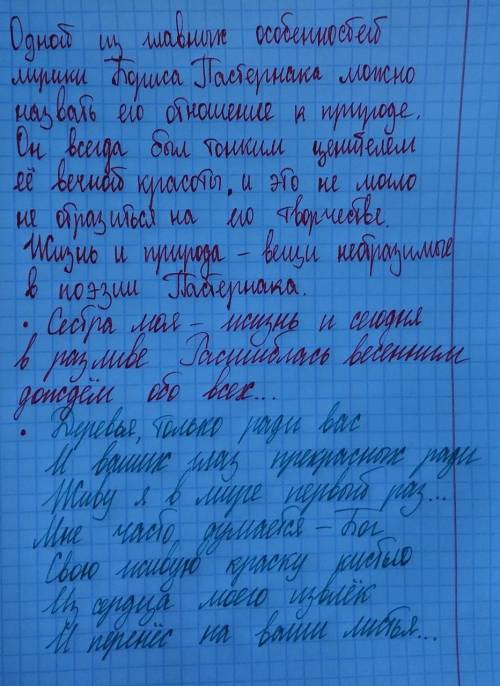 Одной из главных особенностей
лирики Бориса Пастернака можно
назвать его отношение к природе.
Он всегда был тонким ценителем
её вечной красоты, и это не могло
не отразиться на его творчестве.
Жизнь и природа – вещи неотразимые
в поэзии Пастернака.
• Сестра моя – жизнь и сегодня
в разливе Расшиблась весенним
дождём обо всех...
• Деревья, только ради вас
И ваших глаз прекрасных ради
Живу я в мире первый раз...
Мне часто думается – Бог
Свою живую краску кистью
Из сердца моего извлёк
И перенёс на ваши листья...